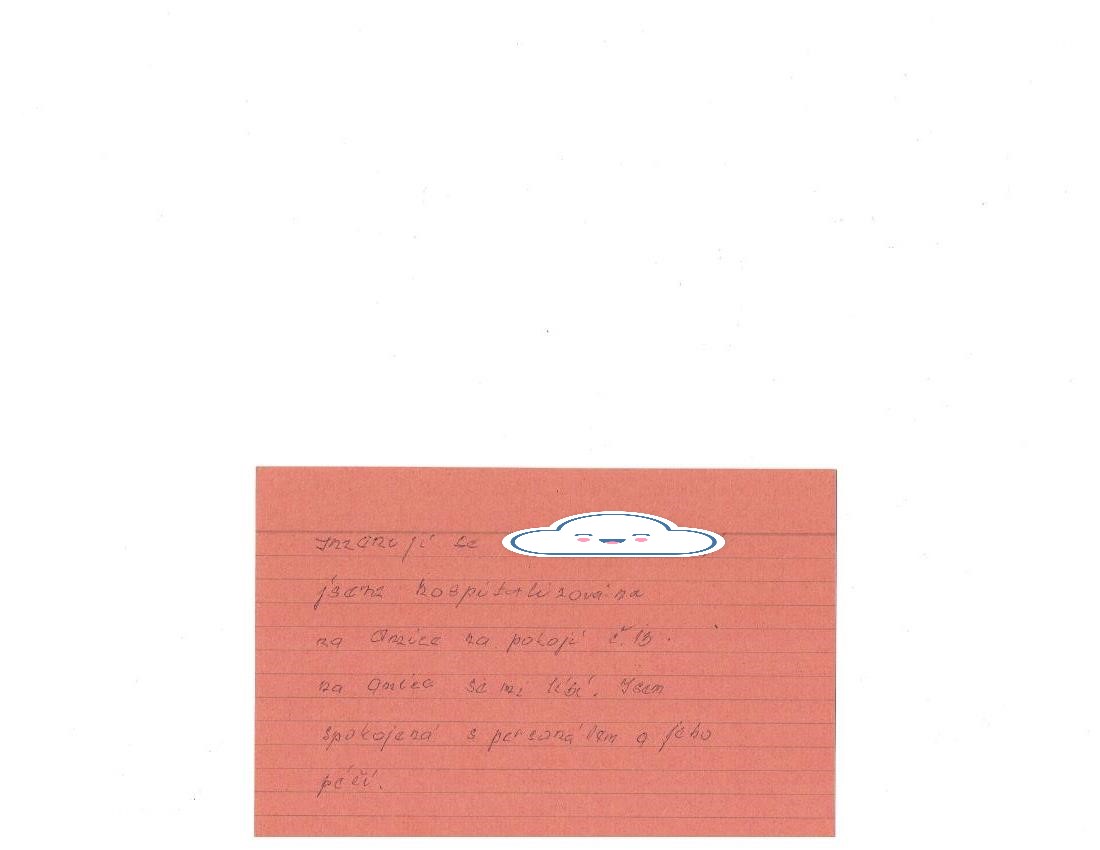 Jmenuji se
jsem hospitalizována
na Anice na pokoji č. 13.
na Anice se mi líbí. Jsem
spokojená s personálem a jeho
péčí.